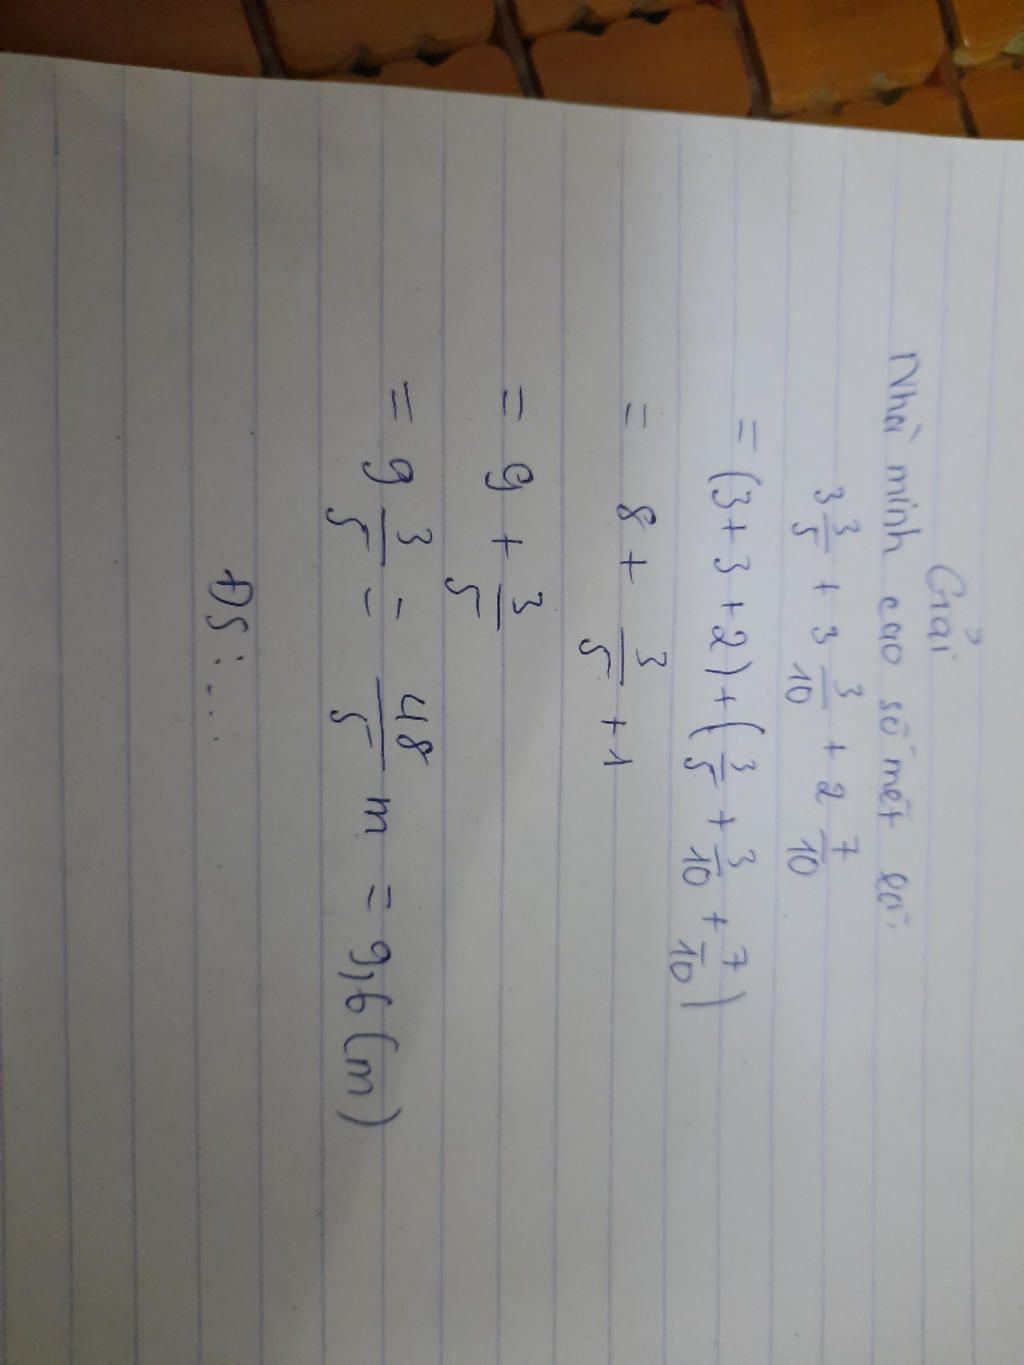 Giải
Nhà mình cao số mét là:
3 3/5 + 3 3/10 + 2 7/10
= (3 + 3 + 2) + (3/5 + 3/10 + 7/10)
= 8 + 3/5 + 1
= 9 + 3/5
= 9 3/5 = 48/5 m = 9,6 (m)
ĐS: ...